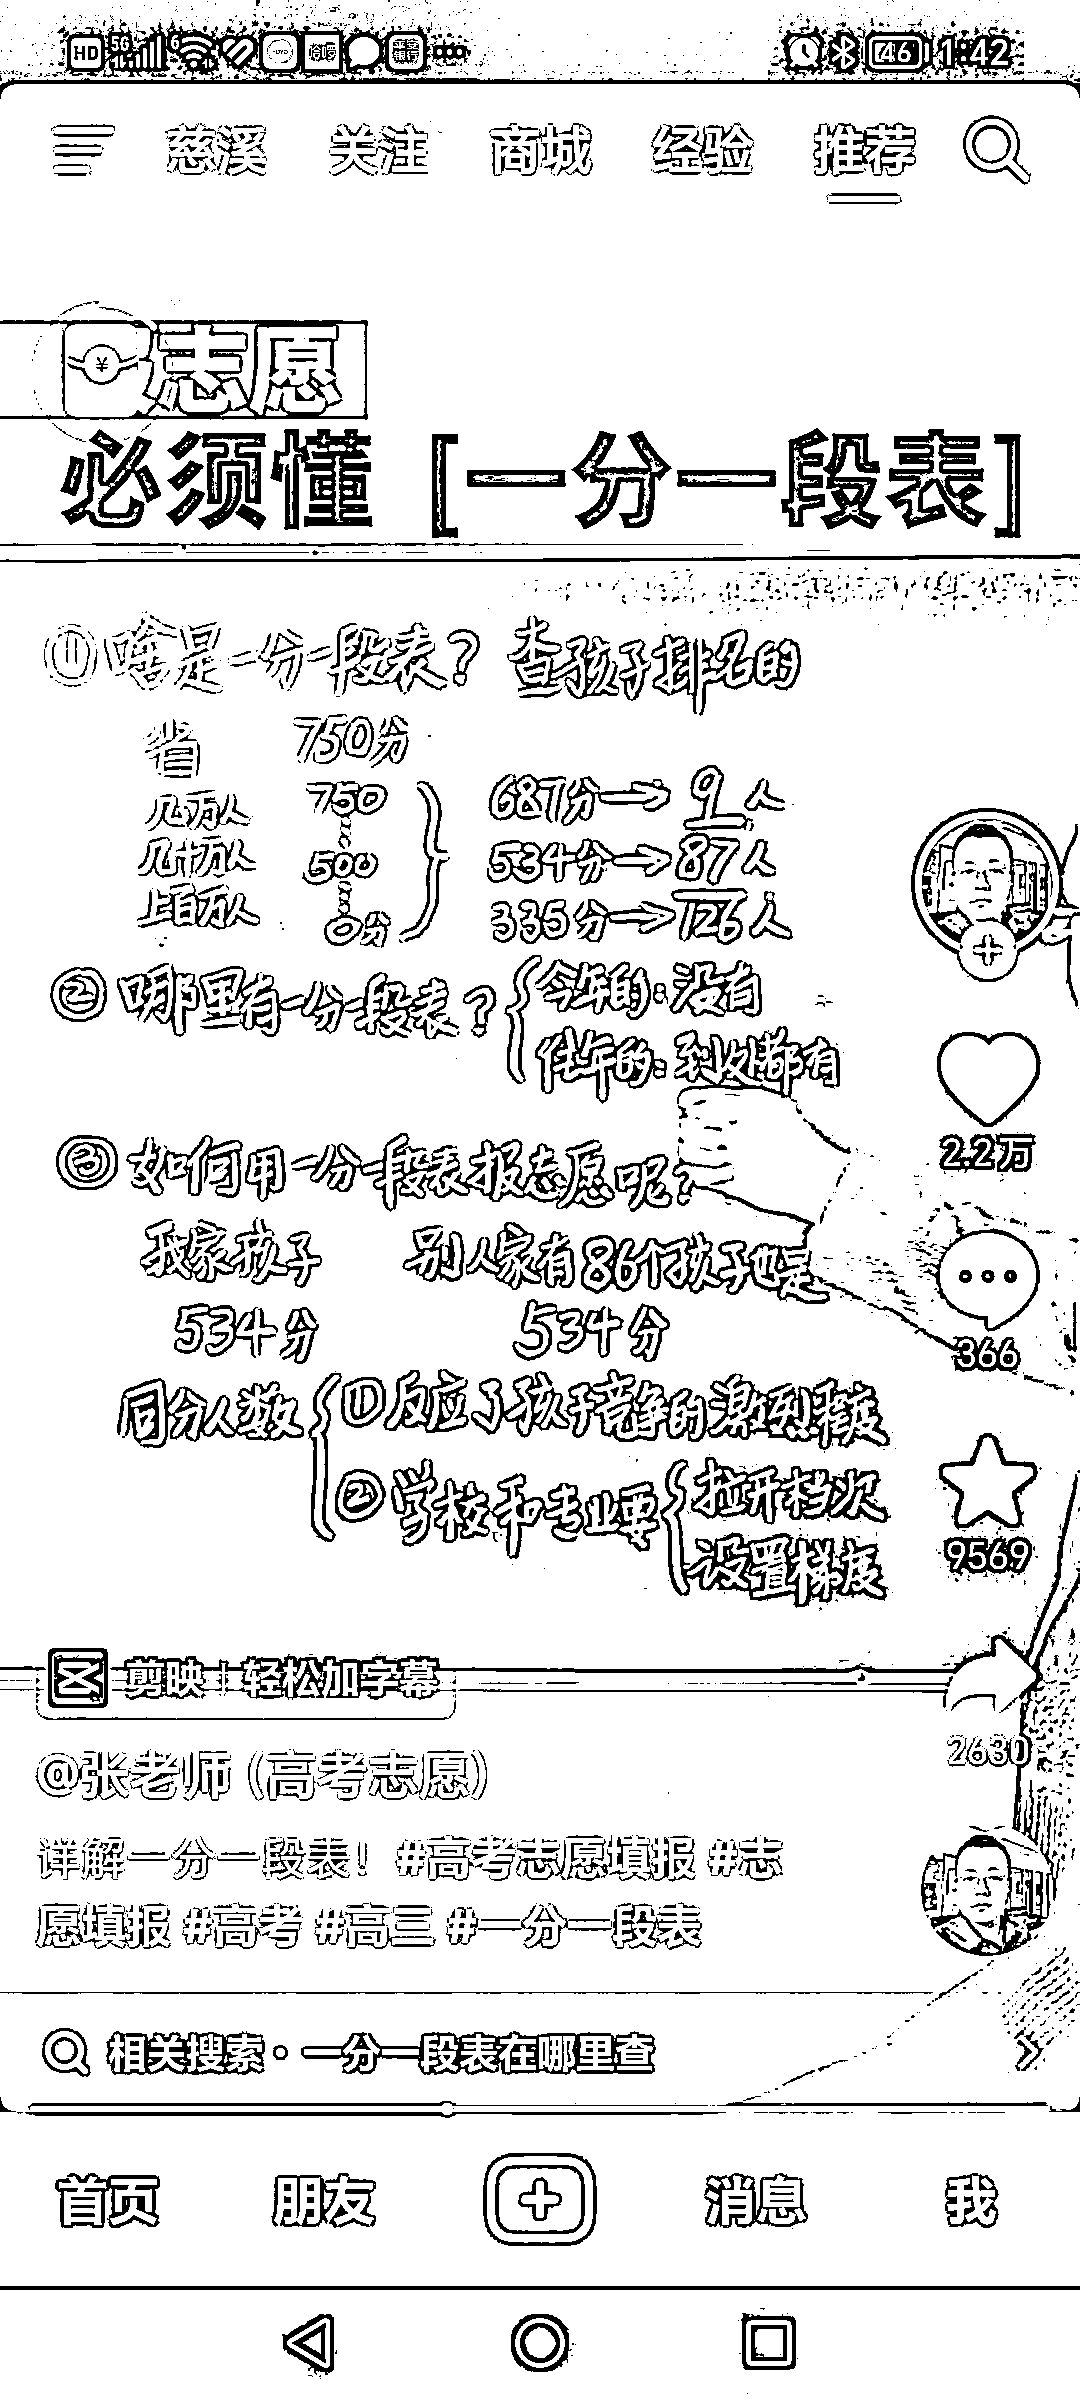 HD 5G 6 46 1:42
慈溪 关注 商城 经验 推荐
志愿
必须懂 [一分一段表]
① 啥是一分一段表? 查孩子排名的
省 750分
几万人 750 687分→9人
几十万人 500 534分→87人
上百万人 0分 335分→126人
② 哪里有一分一段表? 今年的:没有
往年的:到处都有
③ 如何用一分一段表报志愿呢?
我家孩子 别人家有86个孩子也是
534分 534分
同分人数 ①反应了孩子竞争的激烈程度
②学校和专业要 拉开档次
设置梯度
2.2万
366
9569
2630
剪映 | 轻松加字幕
@张老师 (高考志愿)
详解一分一段表! #高考志愿填报 #志
愿填报 #高考 #高三 #一分一段表
相关搜索 · 一分一段表在哪里查
首页 朋友 消息 我